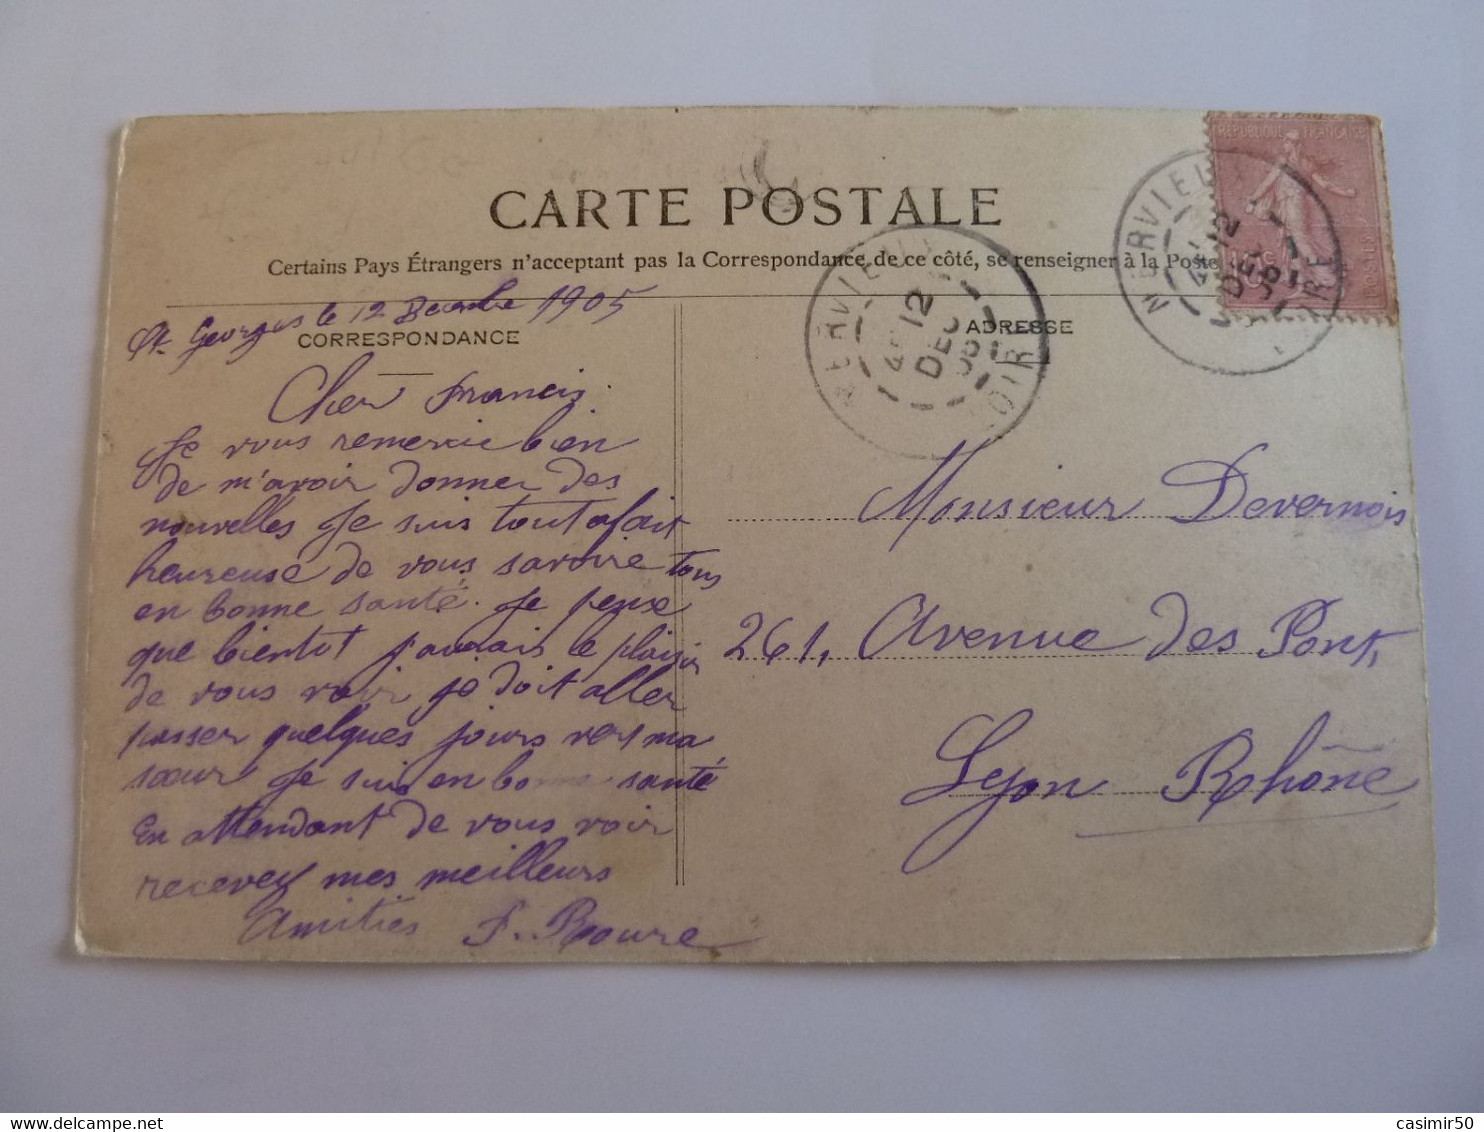 RÉPUBLIQUE FRANÇAISE
CARTE POSTALE
Certains Pays Étrangers n'acceptant pas la Correspondance de ce côté, se renseigner à la Poste
NERVIEUX LOIRE
12
DEC
05
NERVIEUX LOIRE
12
DEC
05
CORRESPONDANCE
ADRESSE
St. Georges le 12 Decembre 1905
Cher Francis.
Je vous remercie bien
de m'avoir donner des
nouvelles Je suis tout a fait
heureuse de vous savoire tous
en bonne santé. Je pense
que bientot j'aurais le plaisir
de vous voir, je doit aller
passer quelques jours vers ma
sœur Je suis en bonne santé
En attendant de vous voir
recevez mes meilleurs
Amitiés F. Roure
Monsieur Devernois
261, Avenue des Pont,
Lyon Rhône
casimir50